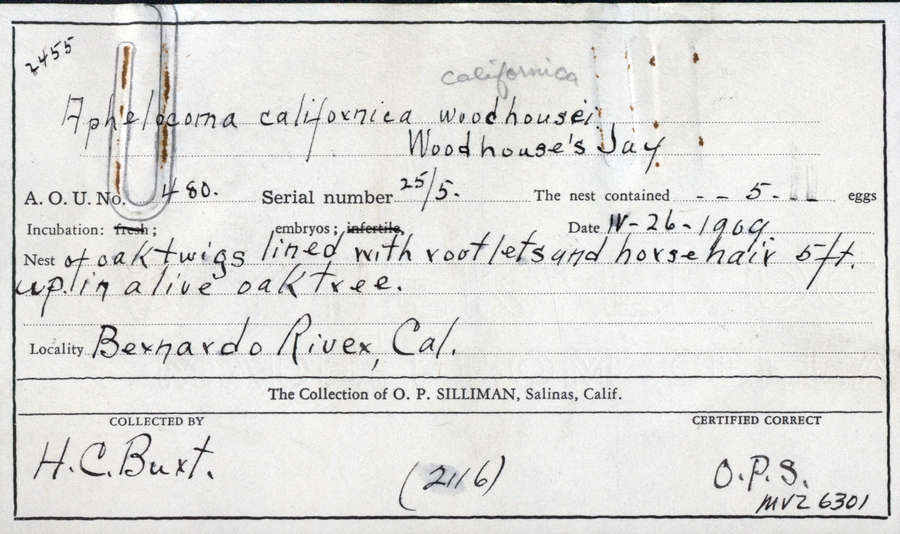 2455
californica
Aphelocoma californica woodhousei
Woodhouse's Jay
A. O. U. No. 480. Serial number 25/5. The nest contained - - 5 - eggs
Incubation: fresh; embryos; infertile, Date IV-26-1909
Nest of oak twigs lined with rootlets and horsehair 5ft.
up in a live oak tree.
Locality Bernardo River, Cal.
The Collection of O. P. SILLIMAN, Salinas, Calif.
COLLECTED BY CERTIFIED CORRECT
H.C. Burt. (2116) O.P.S.
MVZ 6301